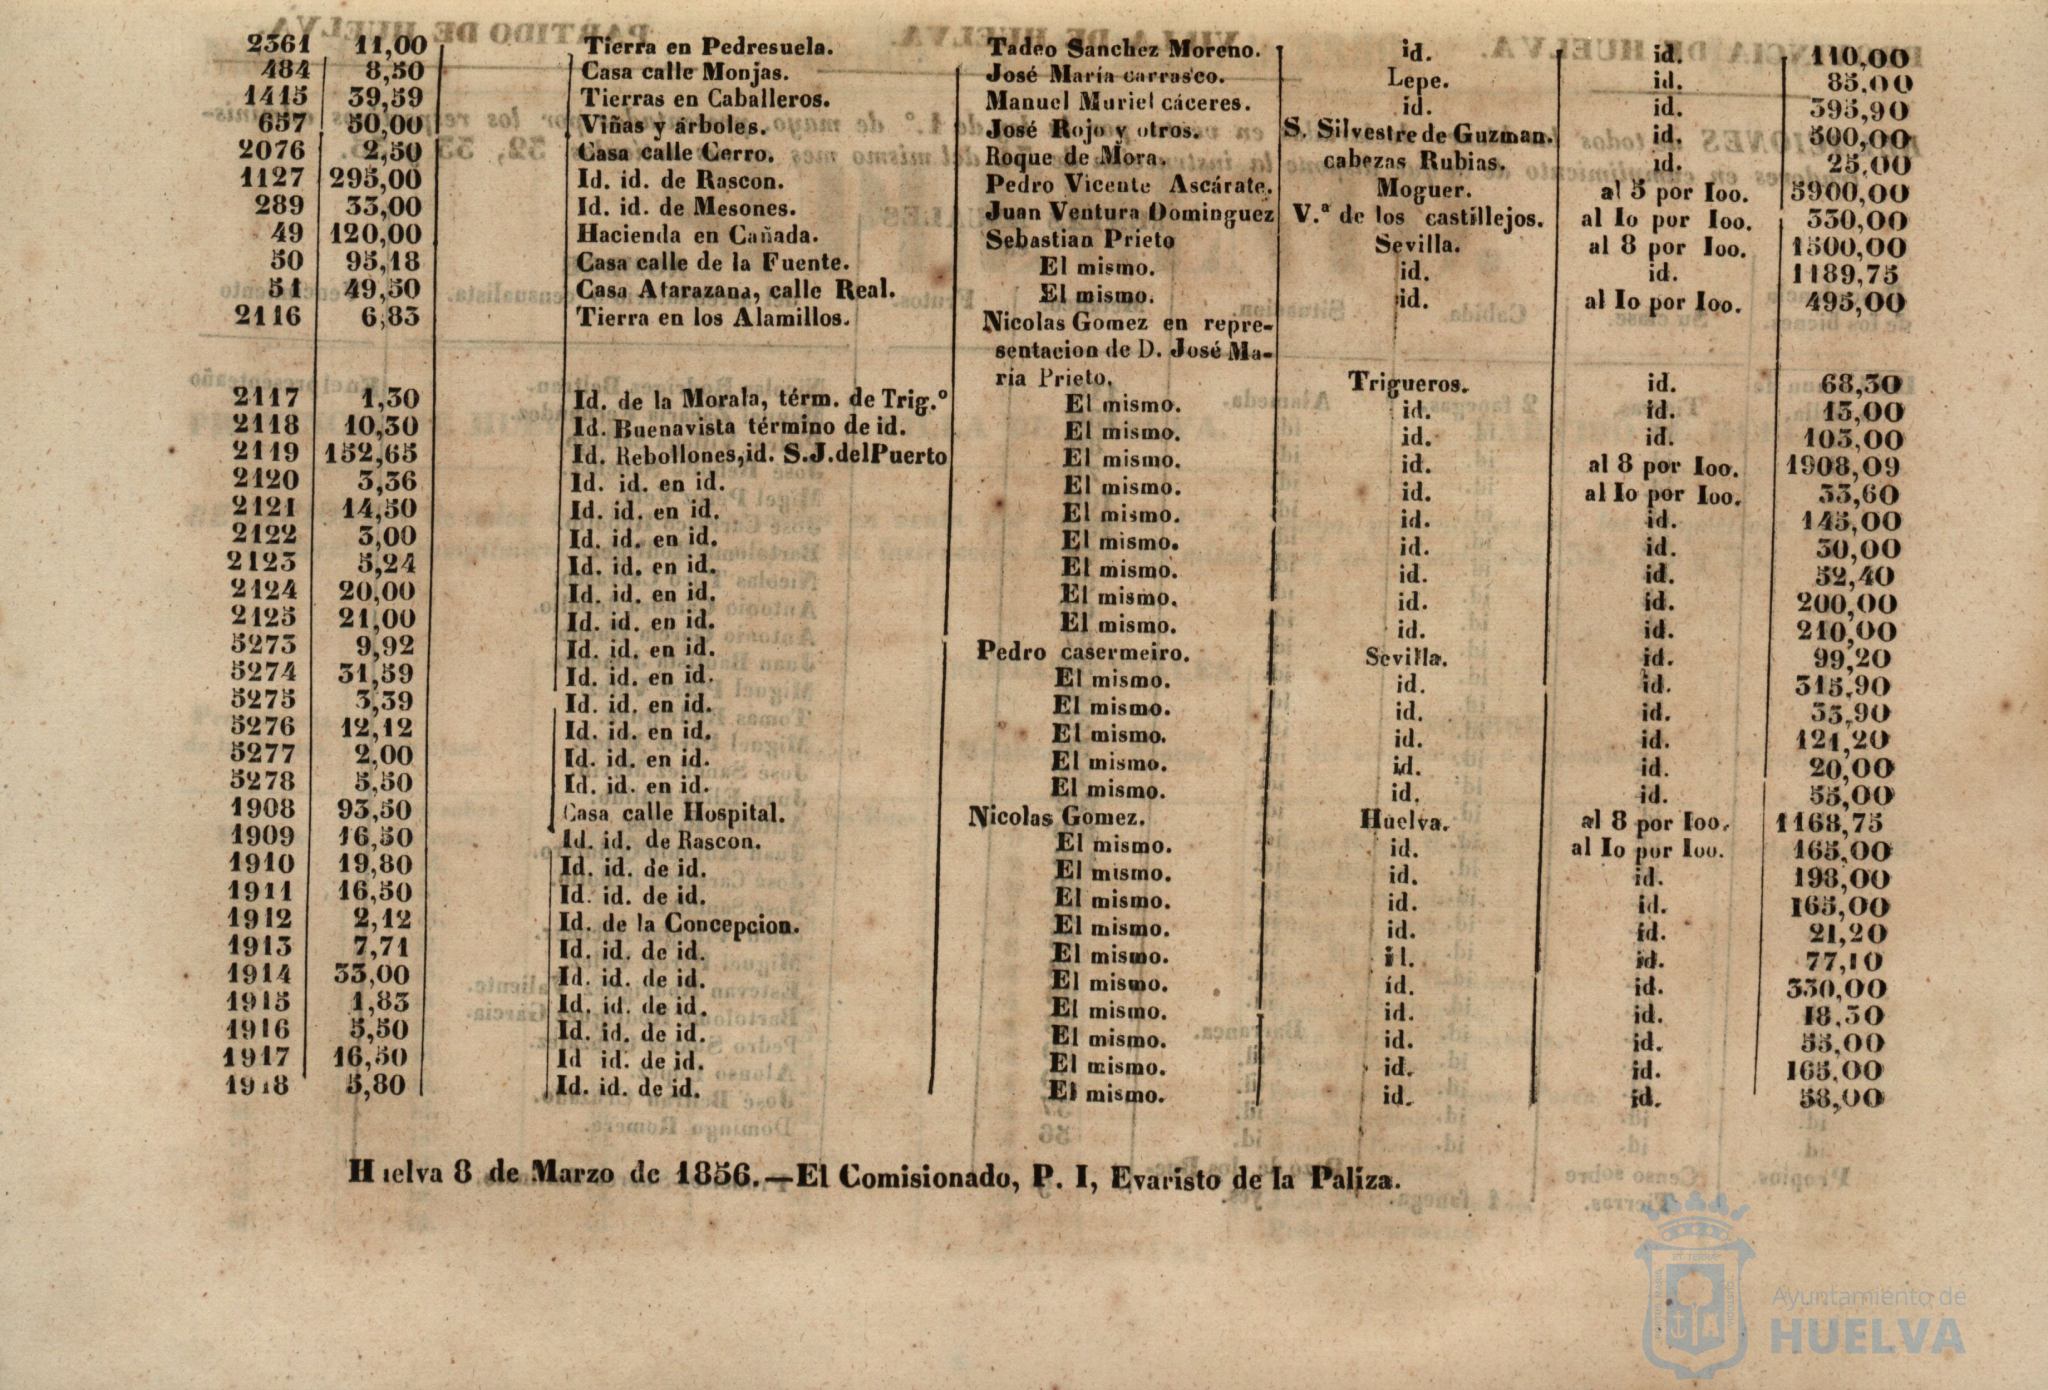 2361 11,00 Tierra en Pedresuela. Tadeo Sanchez Moreno. id. id. 110,00
484 8,50 Casa calle Monjas. José María carrasco. Lepe. id. 85,00
1415 39,59 Tierras en Caballeros. Manuel Muriel cáceres. id. id. 395,90
657 50,00 Viñas y árboles. José Rojo y otros. S. Silvestre de Guzman. id. 500,00
2076 2,50 Casa calle Cerro. Roque de Mora. cabezas Rubias. id. 25,00
1127 295,00 Id. id. de Rascon. Pedro Vicente Ascárate. Moguer. al 5 por Ioo. 5900,00
289 33,00 Id. id. de Mesones. Juan Ventura Dominguez V.ª de los castillejos. al Io por Ioo. 330,00
49 120,00 Hacienda en Cañada. Sebastian Prieto Sevilla. al 8 por Ioo. 1500,00
50 95,18 Casa calle de la Fuente. El mismo. id. id. 1189,75
51 49,50 Casa Atarazana, calle Real. El mismo. id. al Io por Ioo. 495,00
2116 6,83 Tierra en los Alamillos. Nicolas Gomez en repre-
sentacion de D. José Ma-
ría Prieto. Trigueros. id. 68,30
2117 1,30 Id. de la Morala, térm. de Trig.º El mismo. id. id. 13,00
2118 10,30 Id. Buenavista término de id. El mismo. id. id. 103,00
2119 152,65 Id. Rebollones, id. S. J. del Puerto El mismo. id. al 8 por Ioo. 1908,09
2120 3,36 Id. id. en id. El mismo. id. al Io por Ioo. 33,60
2121 14,50 Id. id. en id. El mismo. id. id. 145,00
2122 3,00 Id. id. en id. El mismo. id. id. 30,00
2123 5,24 Id. id. en id. El mismo. id. id. 52,40
2124 20,00 Id. id. en id. El mismo. id. id. 200,00
2125 21,00 Id. id. en id. El mismo. id. id. 210,00
5273 9,92 Id. id. en id. Pedro casermeiro. Sevilla. id. 99,20
5274 31,59 Id. id. en id. El mismo. id. id. 315,90
5275 3,39 Id. id. en id. El mismo. id. id. 33,90
5276 12,12 Id. id. en id. El mismo. id. id. 121,20
5277 2,00 Id. id. en id. El mismo. id. id. 20,00
5278 5,50 Id. id. en id. El mismo. id. id. 55,00
1908 93,50 Casa calle Hospital. Nicolas Gomez. Huelva. al 8 por Ioo. 1168,75
1909 16,50 Id. id. de Rascon. El mismo. id. al Io por Ioo. 165,00
1910 19,80 Id. id. de id. El mismo. id. id. 198,00
1911 16,50 Id. id. de id. El mismo. id. id. 165,00
1912 2,12 Id. de la Concepcion. El mismo. id. id. 21,20
1913 7,71 Id. id. de id. El mismo. id. id. 77,10
1914 33,00 Id. id. de id. El mismo. id. id. 330,00
1915 1,83 Id. id. de id. El mismo. id. id. 18,30
1916 5,50 Id. id. de id. El mismo. id. id. 55,00
1917 16,50 Id id. de id. El mismo. id. id. 165,00
1918 5,80 Id. id. de id. El mismo. id. id. 58,00
Huelva 8 de Marzo de 1856.—El Comisionado, P. I, Evaristo de la Paliza.
Ayuntamiento de
HUELVA